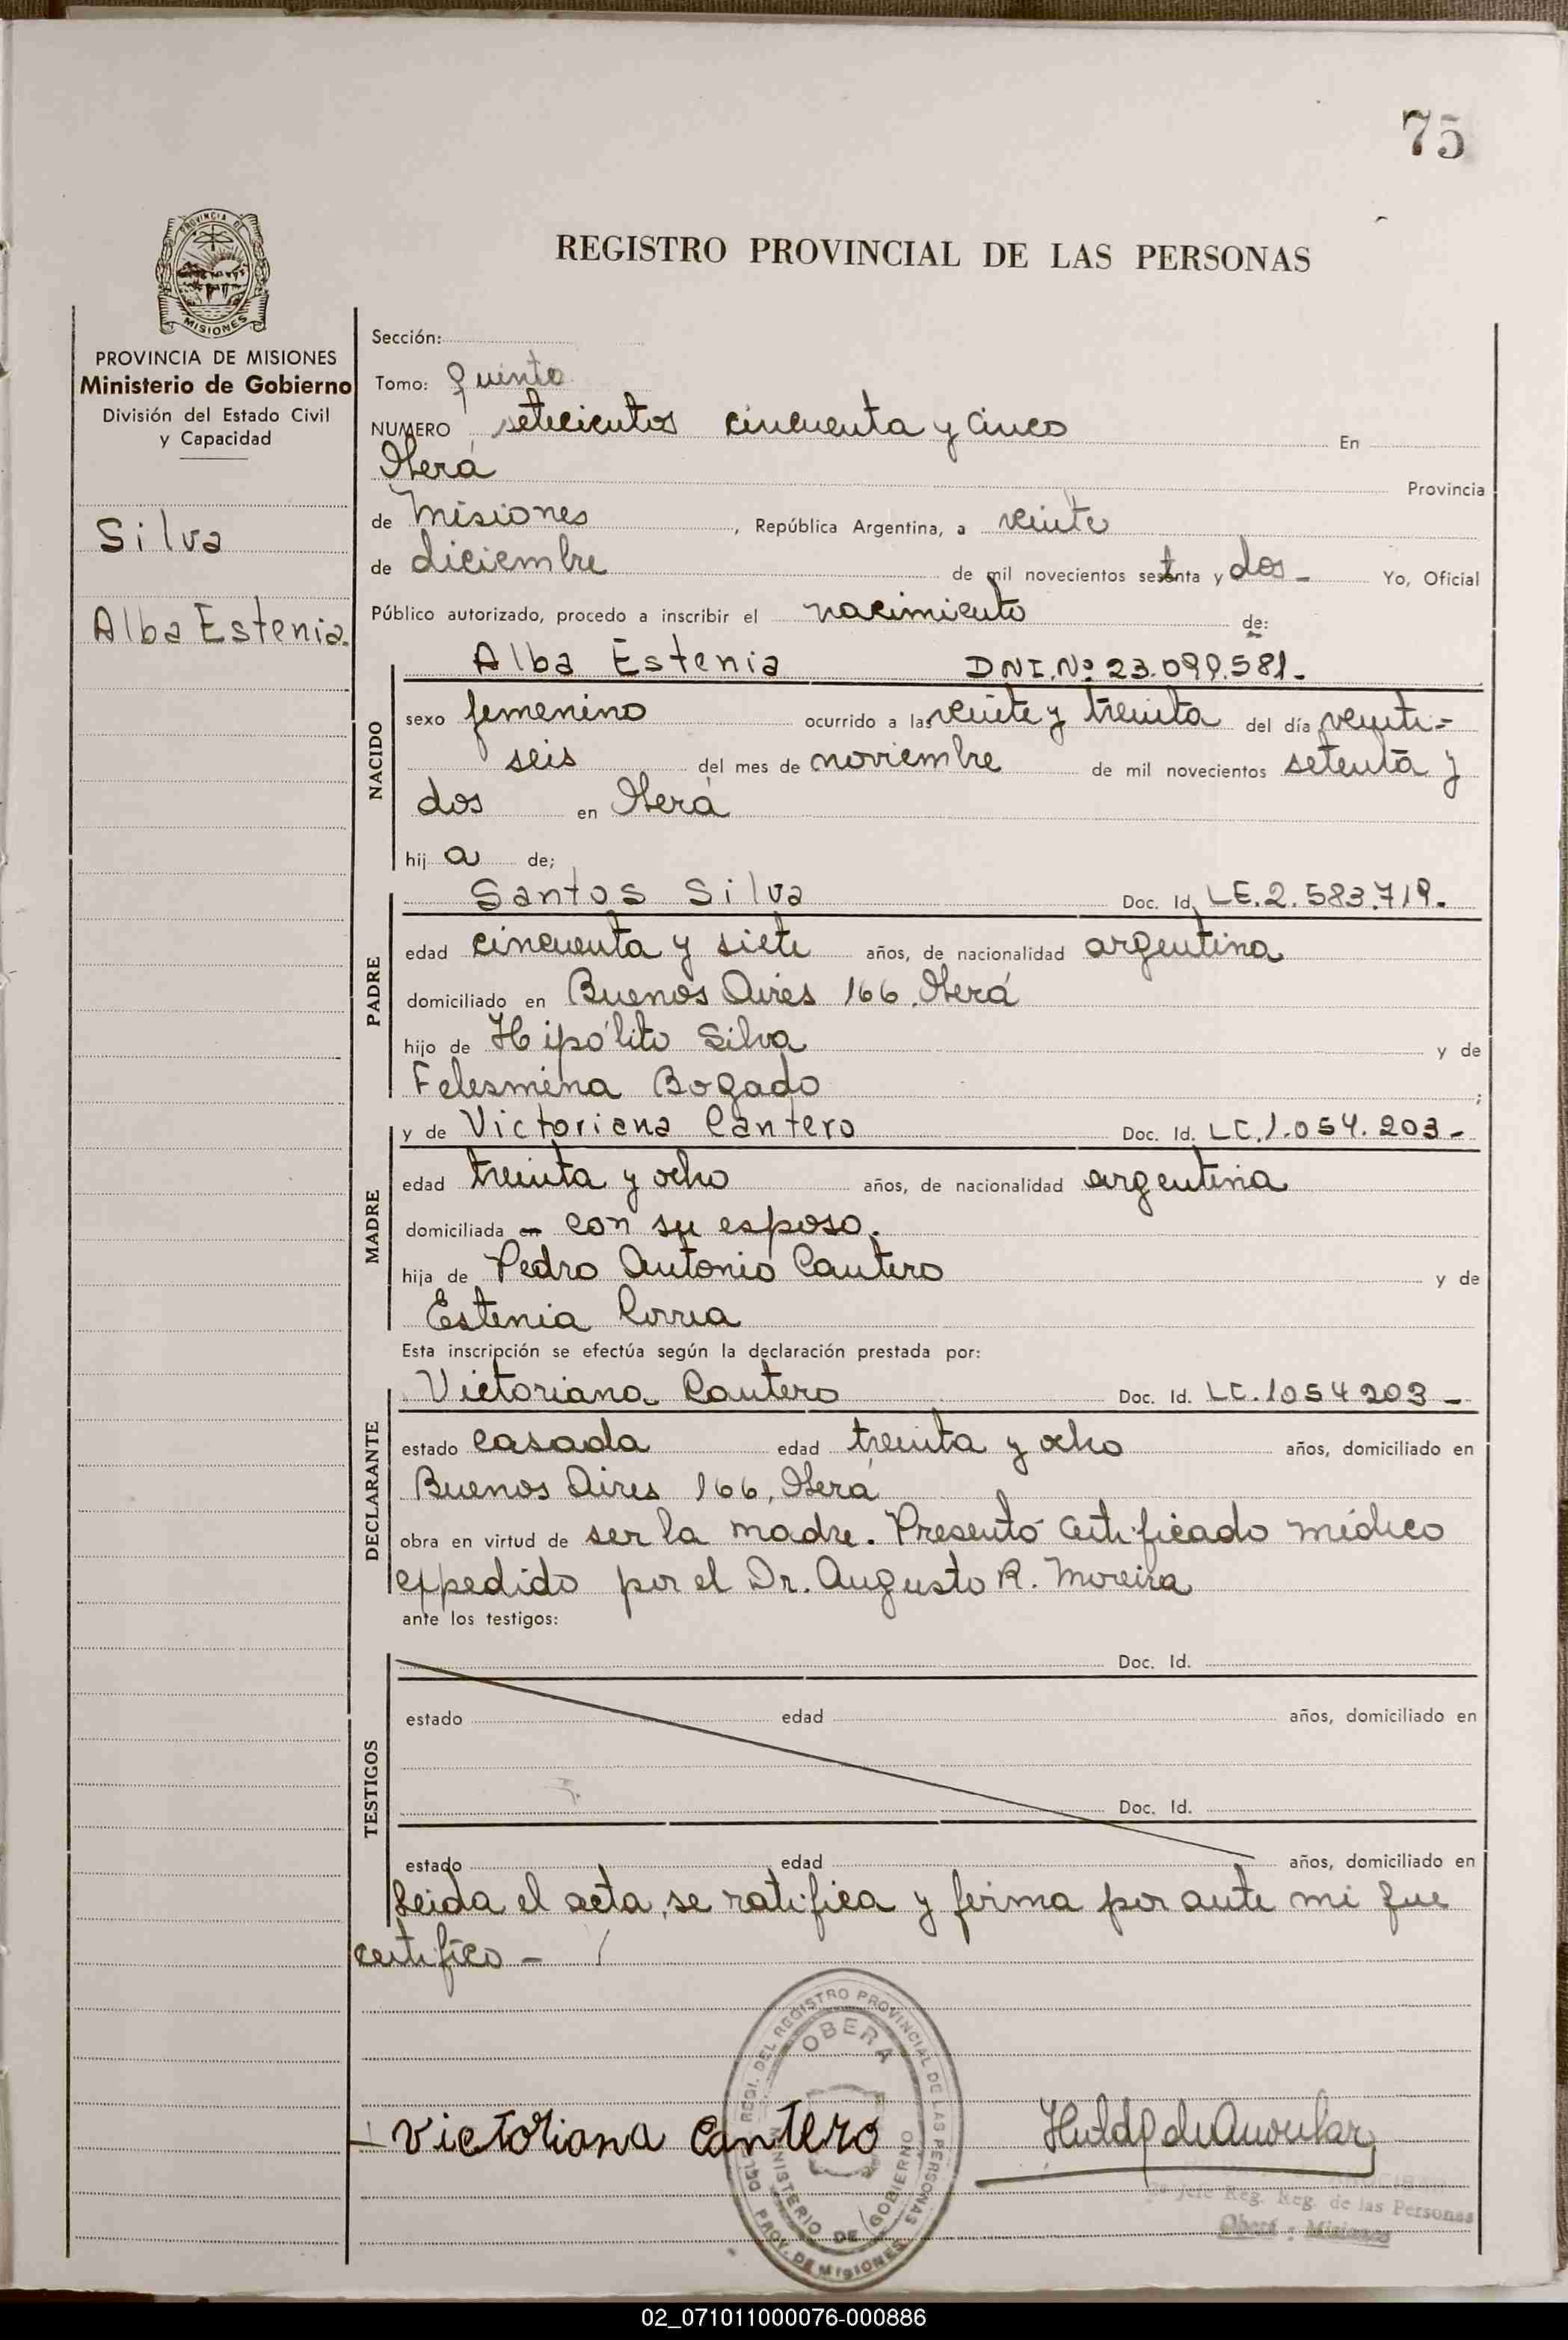 75
PROVINCIA DE
MISIONES
REGISTRO PROVINCIAL DE LAS PERSONAS
PROVINCIA DE MISIONES
Ministerio de Gobierno
División del Estado Civil
y Capacidad
Silva
Alba Estenia.
Sección:
Tomo: Quinto
NUMERO setecientos cincuenta y cinco En
Oberá Provincia
de Misiones, República Argentina, a veinte
de diciembre de mil novecientos setenta y dos - Yo, Oficial
Público autorizado, procedo a inscribir el nacimiento de:
NACIDO
Alba Estenia DNI. Nº 23.099.581.-
sexo femenino ocurrido a las veinte y treinta del día veinti-
seis del mes de noviembre de mil novecientos setenta y
dos en Oberá
hij a de;
PADRE
Santos Silva Doc. Id. LE. 2.583.719.
edad cincuenta y siete años, de nacionalidad argentina
domiciliado en Buenos Aires 166, Oberá
hijo de Hipólito Silva y de
Felesmina Bogado ;
MADRE
y de Victoriana Cantero Doc. Id. LC. 1.054.203 -
edad treinta y ocho años, de nacionalidad argentina
domiciliada en - con su esposo.
hija de Pedro Antonio Cantero y de
Estenia Correa
Esta inscripción se efectúa según la declaración prestada por:
DECLARANTE
Victoriana Cantero Doc. Id. LC. 1054203 -
estado casada edad treinta y ocho años, domiciliado en
Buenos Aires 166, Oberá
obra en virtud de ser la madre. Presentó certificado médico
expedido por el Dr. Augusto R. Moreira
ante los testigos:
TESTIGOS
Doc. Id.
estado edad años, domiciliado en
Doc. Id.
estado edad años, domiciliado en
Leida el acta, se ratifica y firma por ante mi que
certifico -
DEL REGISTRO PROVINCIAL DE LAS PERSONAS
OBERA
MINISTERIO DE GOBIERNO
PROV. DE MISIONES
Victoriana Cantero
Jefe Reg. Reg. de las Personas
Oberá - Misiones
02_071011000076-000886